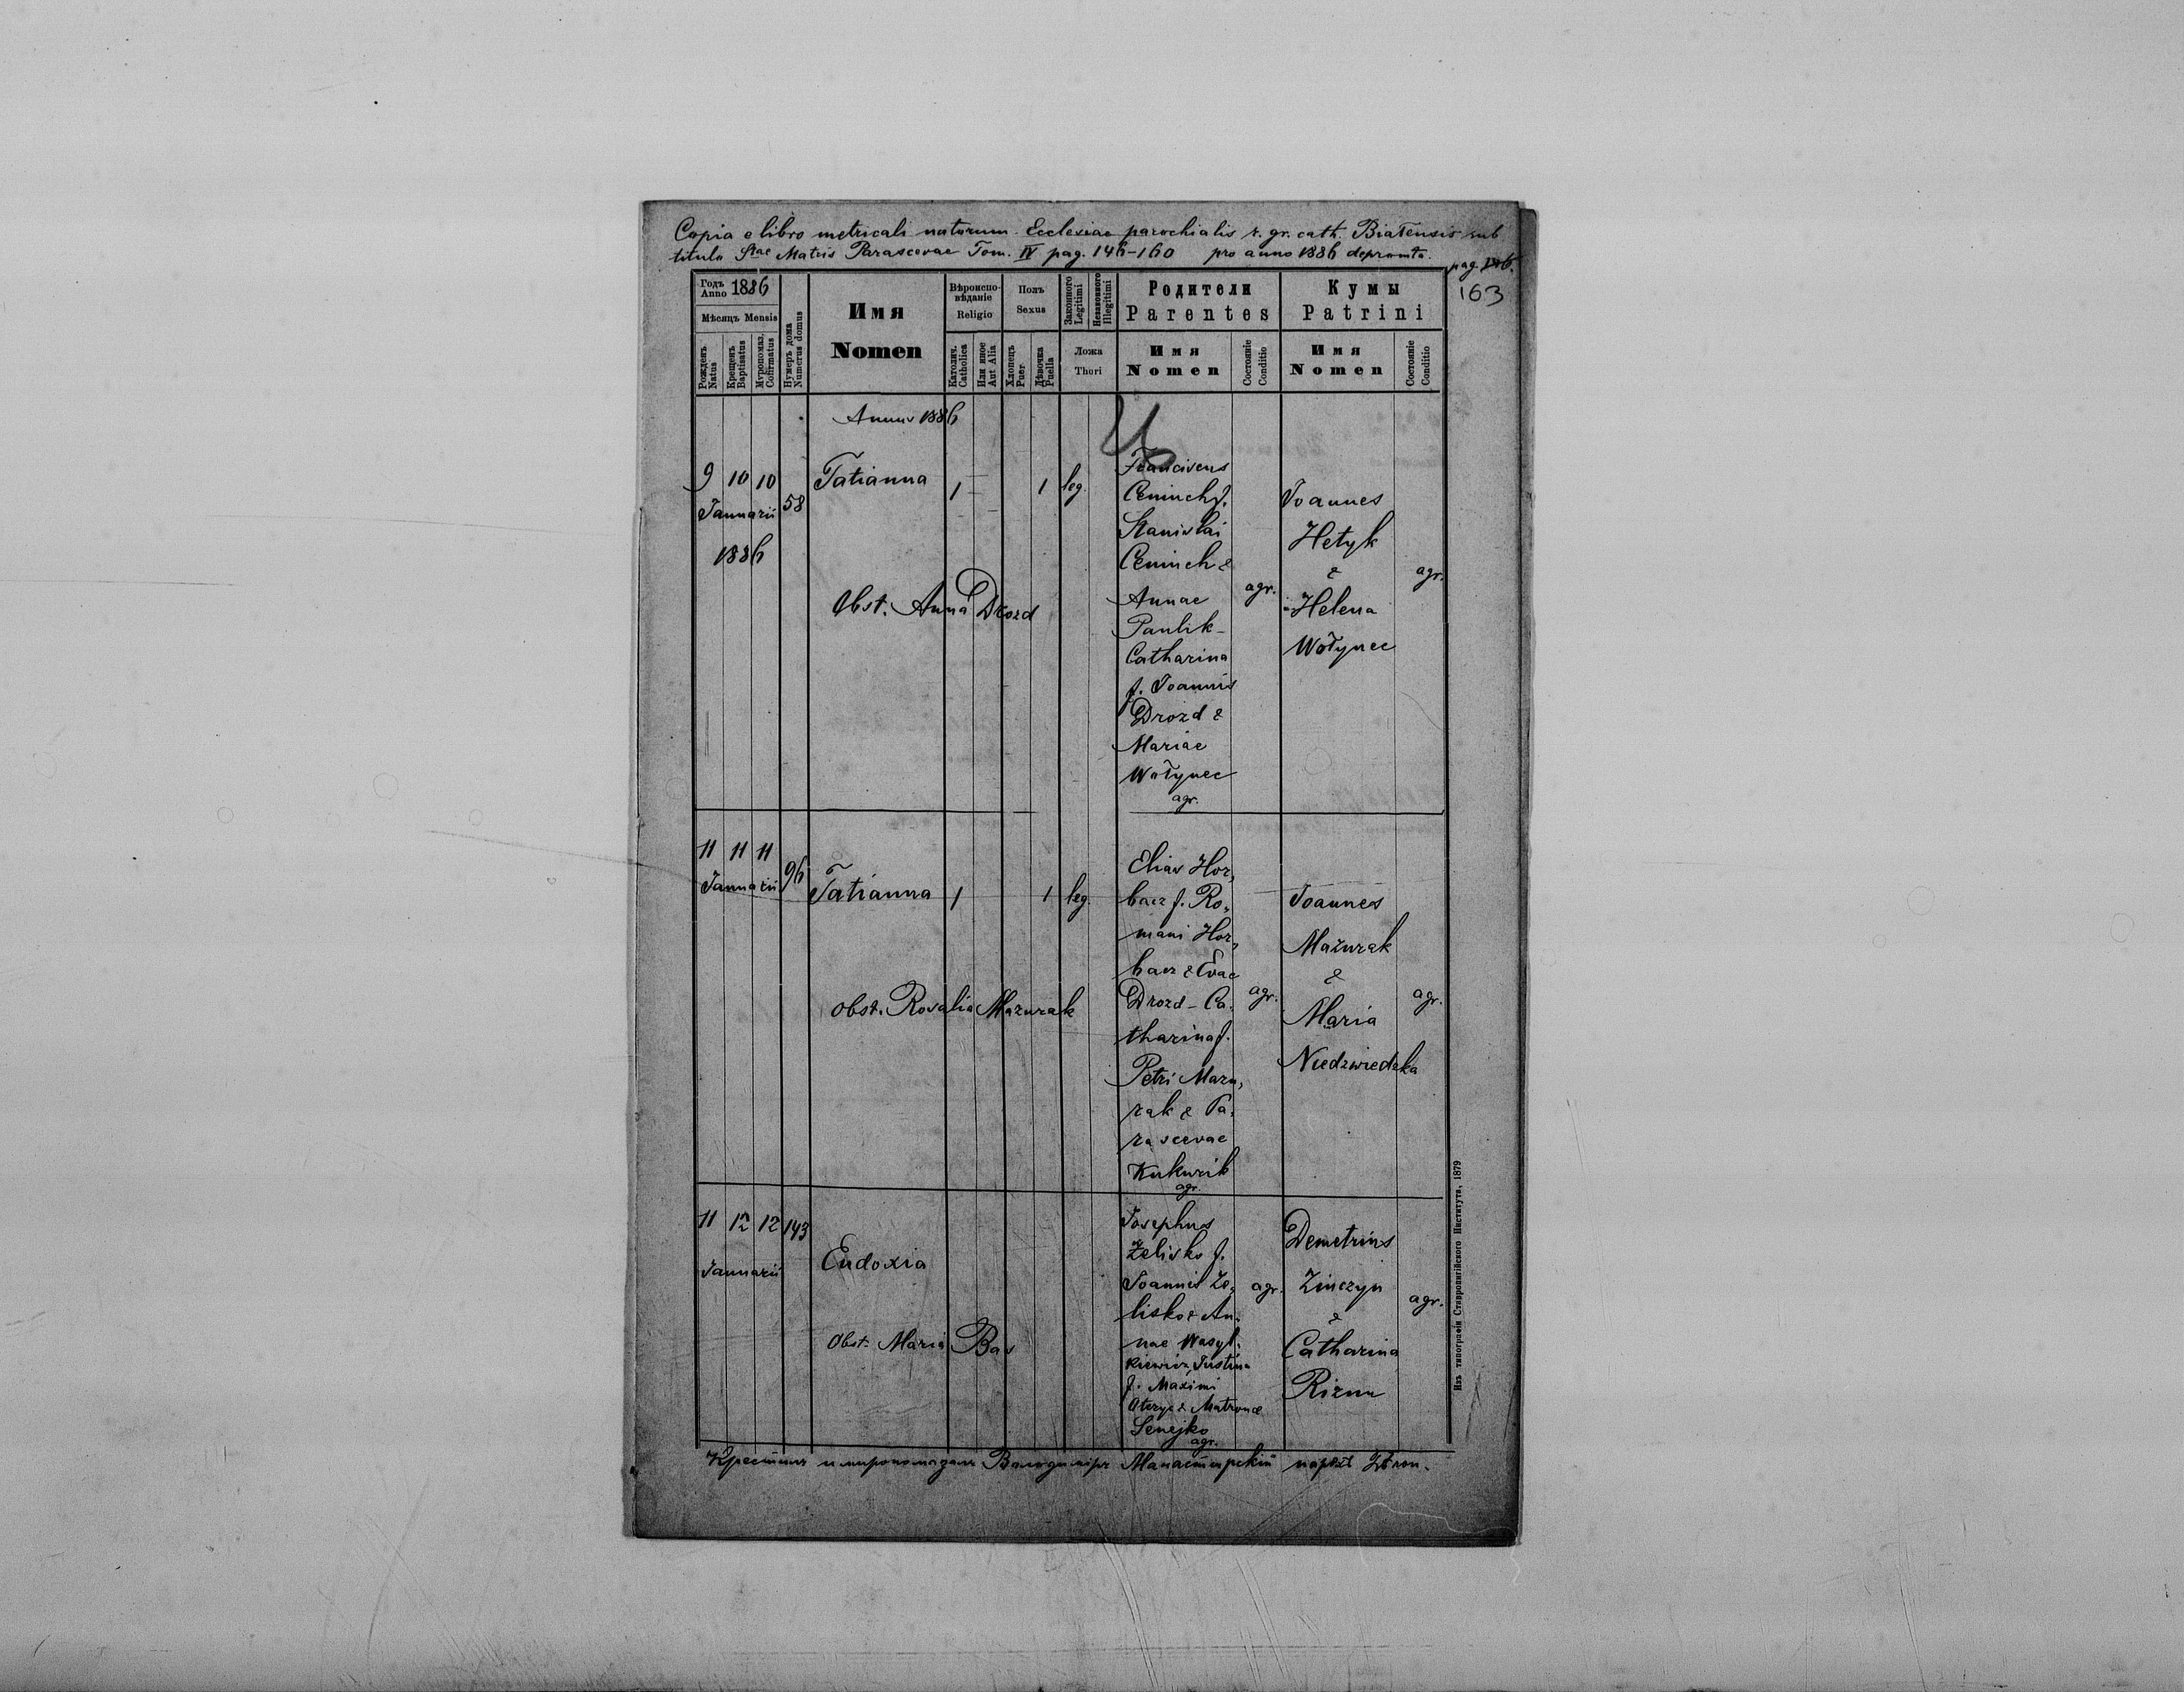 Copia e libro metricali natorum Ecclesiae parochialis r. gr. cath. Białensis sub
titulo Stae Matris Parascevae Tom. IV pag. 146-160 pro anno 1886 depromta.
pag. 146.
163
Годъ Anno 1886
Мѣсяцъ Mensis
Рожденъ Natus
Крещенъ Baptisatus
Мѵропомаз. Cofirmatus
Нумеръ дома Numerus domus
Имя
Nomen
Вѣроисповѣданіе
Religio
Католич. Catholica
Или иное Aut Alia
Полъ
Sexus
Хлопецъ Puer
Дѣвочка Puella
Законного Legitimi
Незаконного Illegitimi
Ложа
Thori
Родители
Parentes
Имя
Nomen
Состояніе Conditio
Кумы
Patrini
Имя
Nomen
Состояніе Conditio
Annus 1886
9 10 10
Januarii
1886
58
Tatianna
1
1
leg.
Obst. Anna Drozd
Franciscus
Ceminch f.
Stanislai
Ceminch &
Annae
Paulik-
Catharina
f. Joannis
Drozd &
Mariae
Wołynec
agr.
agr.
Joannes
Hetyk
&
Helena
Wołynec
agr.
11 11 11
Januarii
96
Tatianna
1
1
leg.
Obst. Rosalia Mazurak
Elias Hor,
bacz f. Ro,,
mani Hor,
bacz & Evae
Drozd - Ca,
tharina f.
Petri Mazu,
rak & Pa,
rascevae
agr.
agr.
Joannes
Mazurak
&
Maria
Niedzwiedzka
agr.
11 12 12
Januarii
143
Eudoxia
Obst. Maria Bas
Josephus
Żelisko f.
Joannis Że,
lisko & An,
nae Wasyl,
kiewicz, Justina
f. Maximi
& Matronae
Senejko
agr.
agr.
Demetrius
Zinczyn
&
Catharina
agr.
Крестилъ и миропомазалъ Володимиръ Манастирскій
Изъ типографіи Ставропигійского Института, 1879